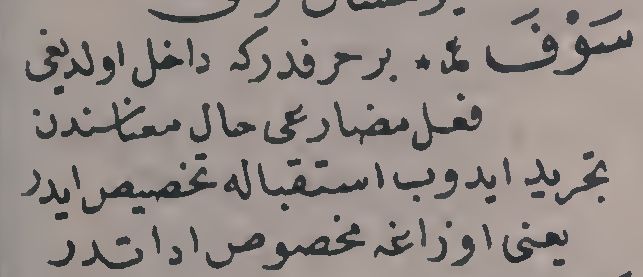 سَوْفَ ع٭ بر حرفدركه داخل اولديغى
فعل مضارعى حال معناسندن
تجريد ايدوب استقباله تخصيص ايدر
يعنى اوزاغه مخصوص اداتدر